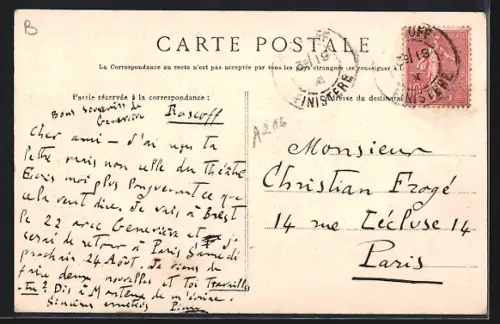 B
CARTE POSTALE
La Correspondance au recto n'est pas acceptée par tous les pays étrangers (se renseigner
Partie réservée à la correspondance :
Adresse du destinat
FINISTERE
FINISTERE
A206
Bons souvenirs de
Geneviève
Roscoff
Cher ami — j'ai reçu ta
lettre mais non celle du théâtre
Ecris moi plus longuement ce que
cela veut dire. Je vais à Brest
le 22 avec Geneviève et
serai de retour à Paris Samedi
prochain 24 Août. Je viens de
faire deux nouvelles et toi travailles
tu ? Dis à de m'écrire.
Sincères amitiés
Monsieur
Christian Frogé
14 rue Lécluse 14
Paris